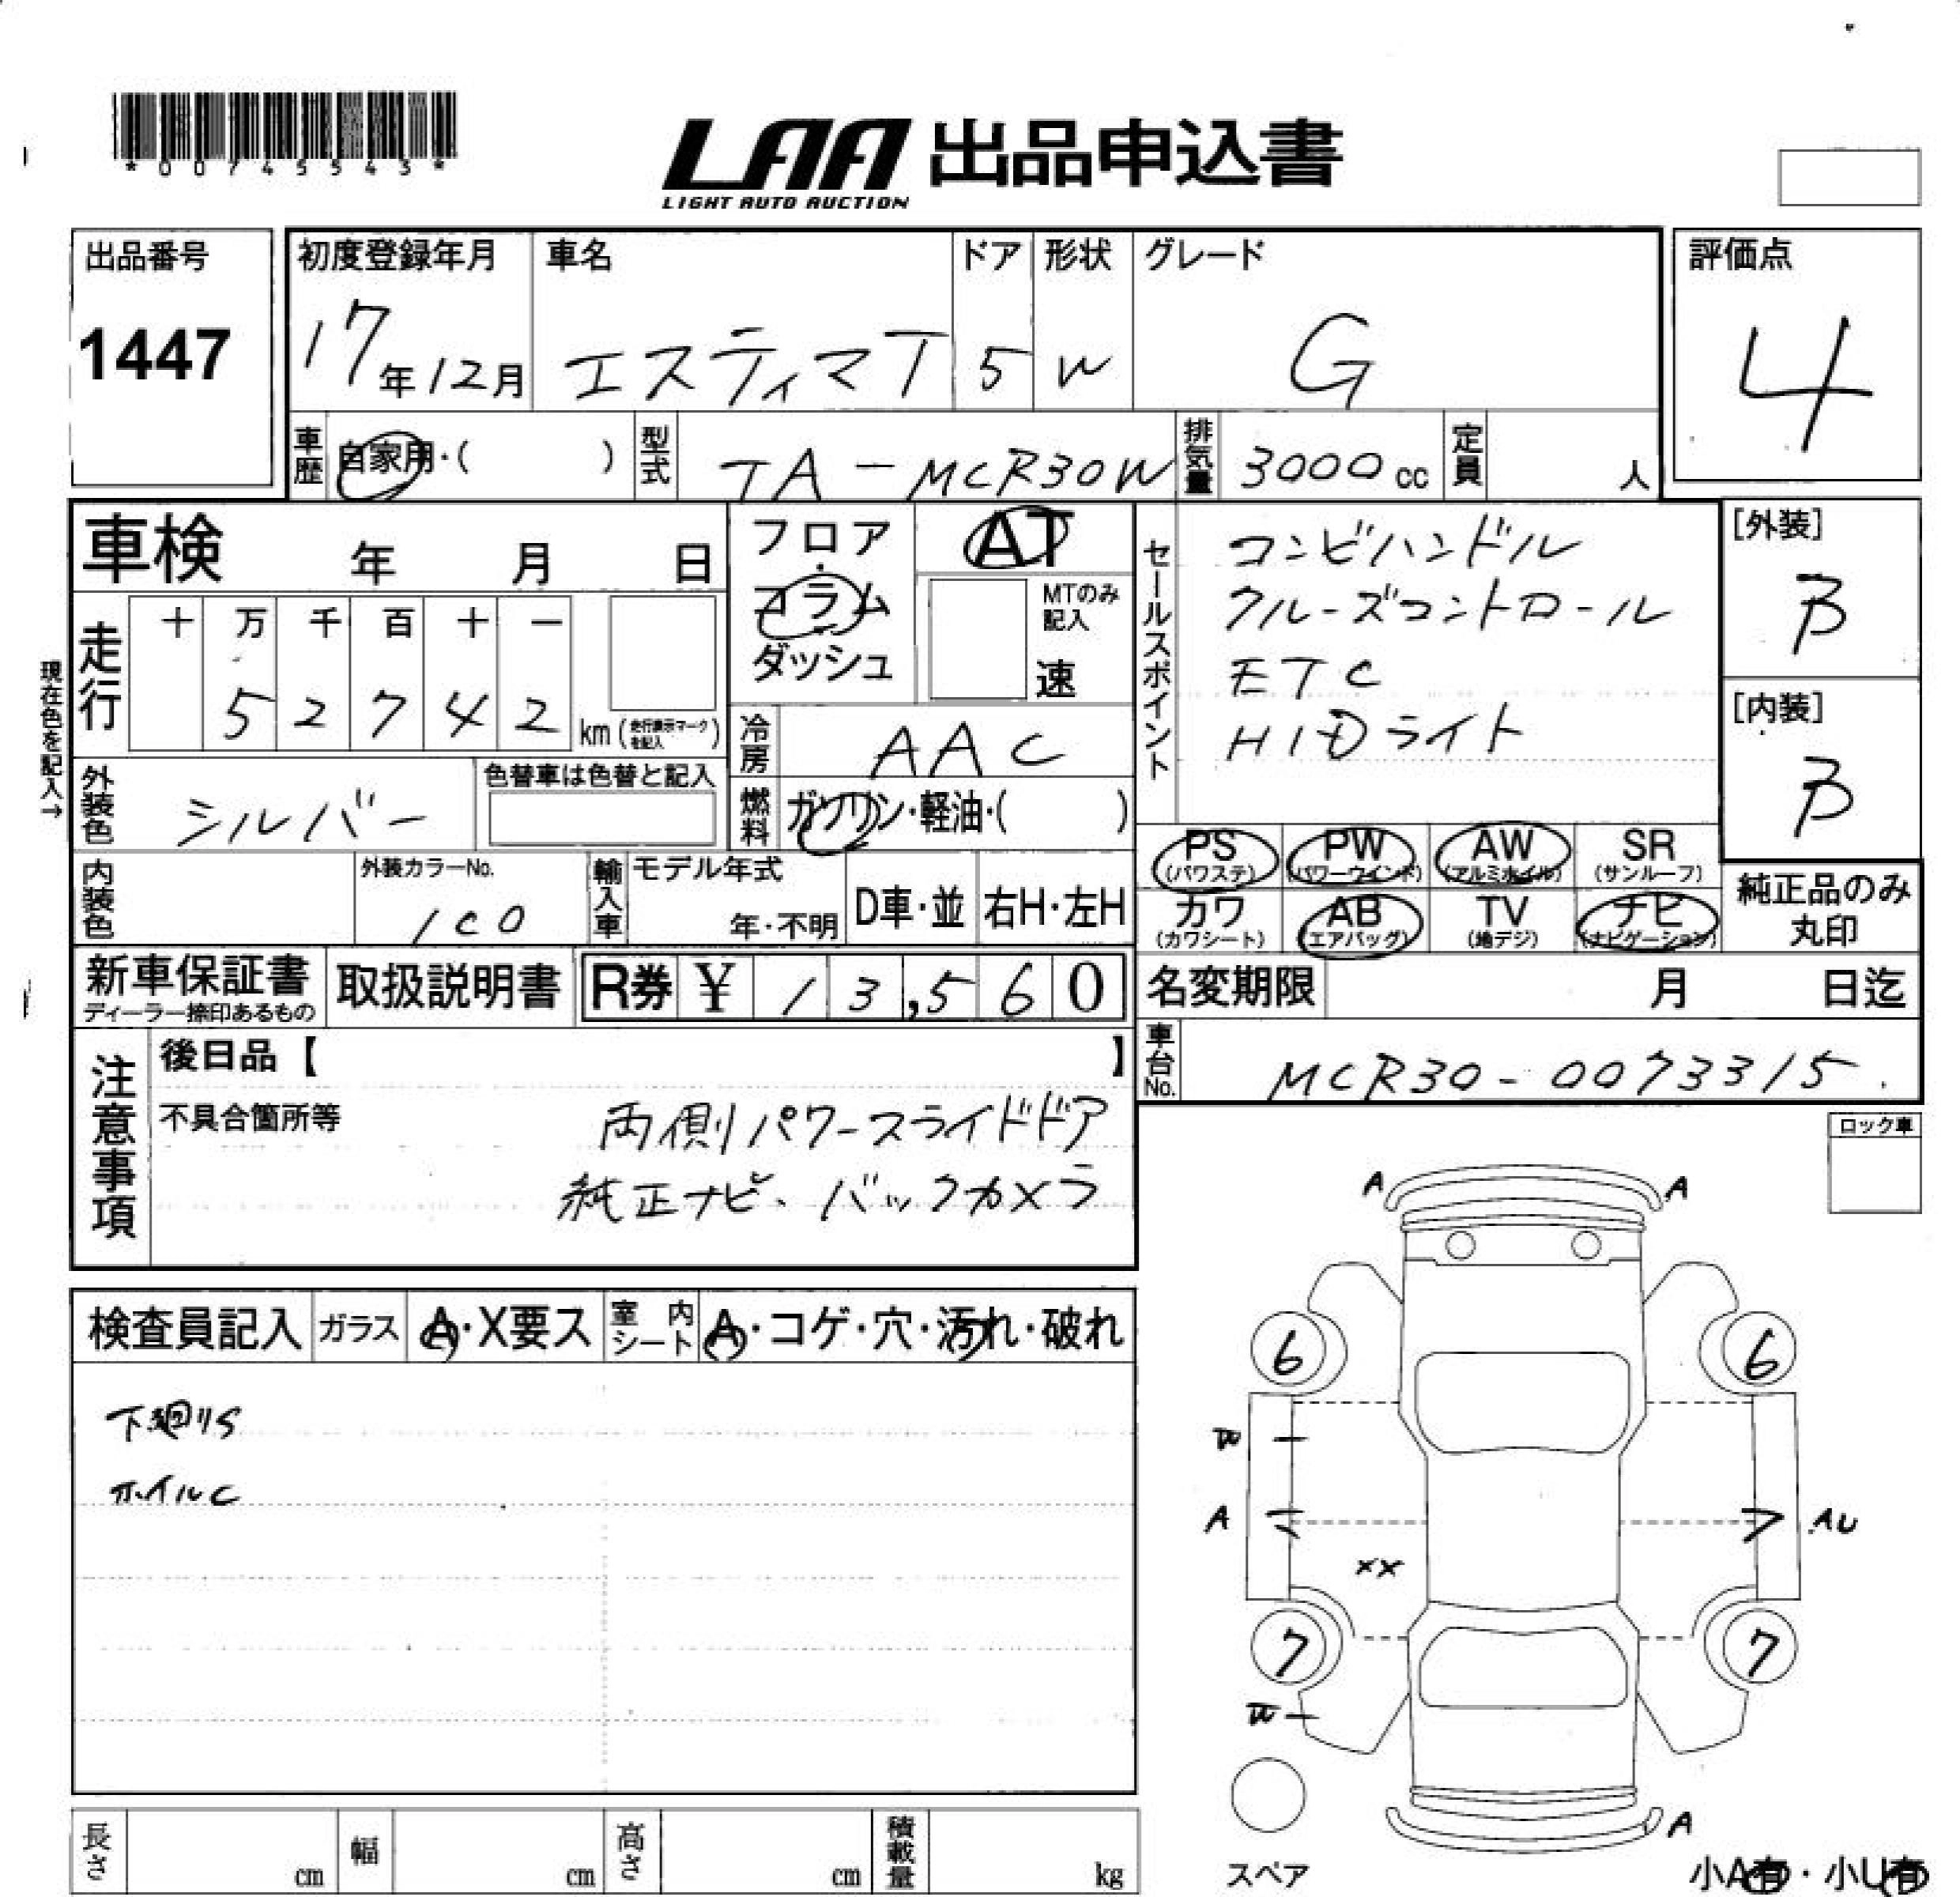 *00745543*
LAA 出品申込書
LIGHT AUTO AUCTION
出品番号
1447
初度登録年月
17年12月
車名
エスティマT
ドア
5
形状
W
グレード
G
評価点
4
車歴
自家用・( )
型式
TA-MCR30W
排気量
3000cc
定員
人
車検 年 月 日
現在色を記入→
走行
十 万 千 百 十 一
5 2 7 4 2 km (走行表示マークを記入)
フロア
・
コラム
・
ダッシュ
AT
MTのみ記入
速
冷房
AAC
燃料
ガソリン・軽油・( )
外装色
シルバー
色替車は色替と記入
内装色
外装カラーNo.
1C0
輸入車
モデル年式
年・不明
D車・並
右H・左H
セールスポイント
コンビハンドル
クルーズコントロール
ETC
HIDライト
[外装]
B
[内装]
B
PS (パワステ)
PW (パワーウインド)
AW (アルミホイル)
SR (サンルーフ)
カワ (カワシート)
AB (エアバッグ)
TV (地デジ)
ナビ (ナビゲーション)
純正品のみ
丸印
新車保証書
ディーラー捺印あるもの
取扱説明書
R券 ¥ 13,560
名変期限 月 日迄
車台No.
MCR30-0073315
注意事項
後日品【 】
不具合箇所等
両側パワースライドドア
純正ナビ、バックカメラ
ロック車
検査員記入
ガラス
A・X要ス
室内シート
A・コゲ・穴・汚れ・破れ
下廻りS
ホイルC
A A
6 6
A AU
XX
7 7
A
スペア
小A有・小U有
長さ cm
幅 cm
高さ cm
積載量 kg